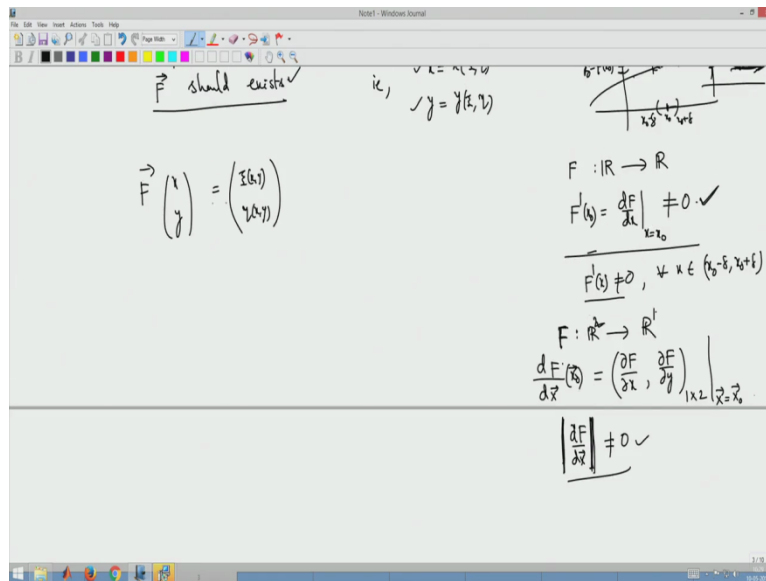 Note1 - Windows Journal
File Edit View Insert Actions Tools Help
Page Width
B I
F⃗ should exists ✓
ie,
✓ y = y(ξ, η)
x₀-δ ( x₀ ) x₀+δ
F⃗ (x y) = (ξ(x,y) η(x,y))
F : ℝ → ℝ
F'(x₀) = dF/dx |ₓ₌ₓ₀ ≠ 0 . ✓
F'(x) ≠ 0 , ∀ x ∈ (x₀-δ, x₀+δ)
F : ℝ² → ℝ¹
dF/dx⃗ (x⃗₀) = (∂F/∂x , ∂F/∂y)₁ₓ₂ | x⃗=x⃗₀
|dF/dx⃗| ≠ 0 ✓